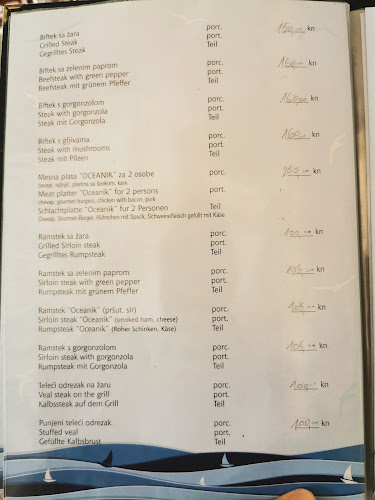 Biftek sa žara porc. 150,00 kn
Grilled Steak port.
Gegrilltes Steak Teil
Biftek sa zelenim paprom porc. 160,00 kn
Beefsteak with green pepper port.
Beefsteak mit grünem Pfeffer Teil
Biftek s gorgonzolom porc. 160,00 kn
Steak with gorgonzola port.
Steak mit Gorgonzola Teil
Biftek s gljivama porc. 160,00 kn
Steak with mushrooms port.
Steak mit Pilzen Teil
Mesna plata "OCEANIK" za 2 osobe porc. kn
ćevapi, ražnjić, piletina sa špekom, kare
Meat platter "OCEANIK" for 2 persons port.
chevap, gourmen burgers, chicken with bacon, pork
Schlachtplatte "Oceanik" fur 2 Personen Teil
Ćevap, Gourmen-Burger, Hühnchen mit Speck, Schweinefleisch gefüllt mit Käse
Ramstek sa žara porc. 100,00 kn
Grilled Sirloin steak port.
Gegrilltes Rumpsteak Teil
Ramstek sa zelenim paprom porc. 105,00 kn
Sirloin steak with green pepper port.
Rumpsteak mit grünem Pfeffer Teil
Ramstek "Oceanik" (pršut, sir) porc. 105,00 kn
Sirloin steak "Oceanik" (smoked ham, cheese) port.
Rumpsteak "Oceanik" (Roher Schinken, Käse) Teil
Ramstek s gorgonzolom porc. 105,00 kn
Sirloin steak with gorgonzola port.
Rumpsteak mit Gorgonzola Teil
Teleći odrezak na žaru porc. 100,00 kn
Veal steak on the grill port.
Kalbssteak auf dem Grill Teil
Punjeni teleći odrezak porc. 100,00 kn
Stuffed veal port.
Gefüllte Kalbsbrust Teil